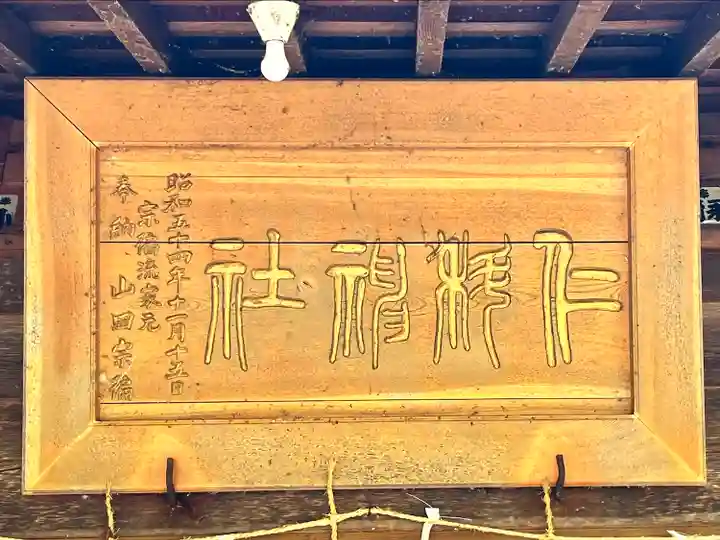 仁科神社
昭和五十四年十一月十五日
宗徧流家元
奉納 山田宗徧